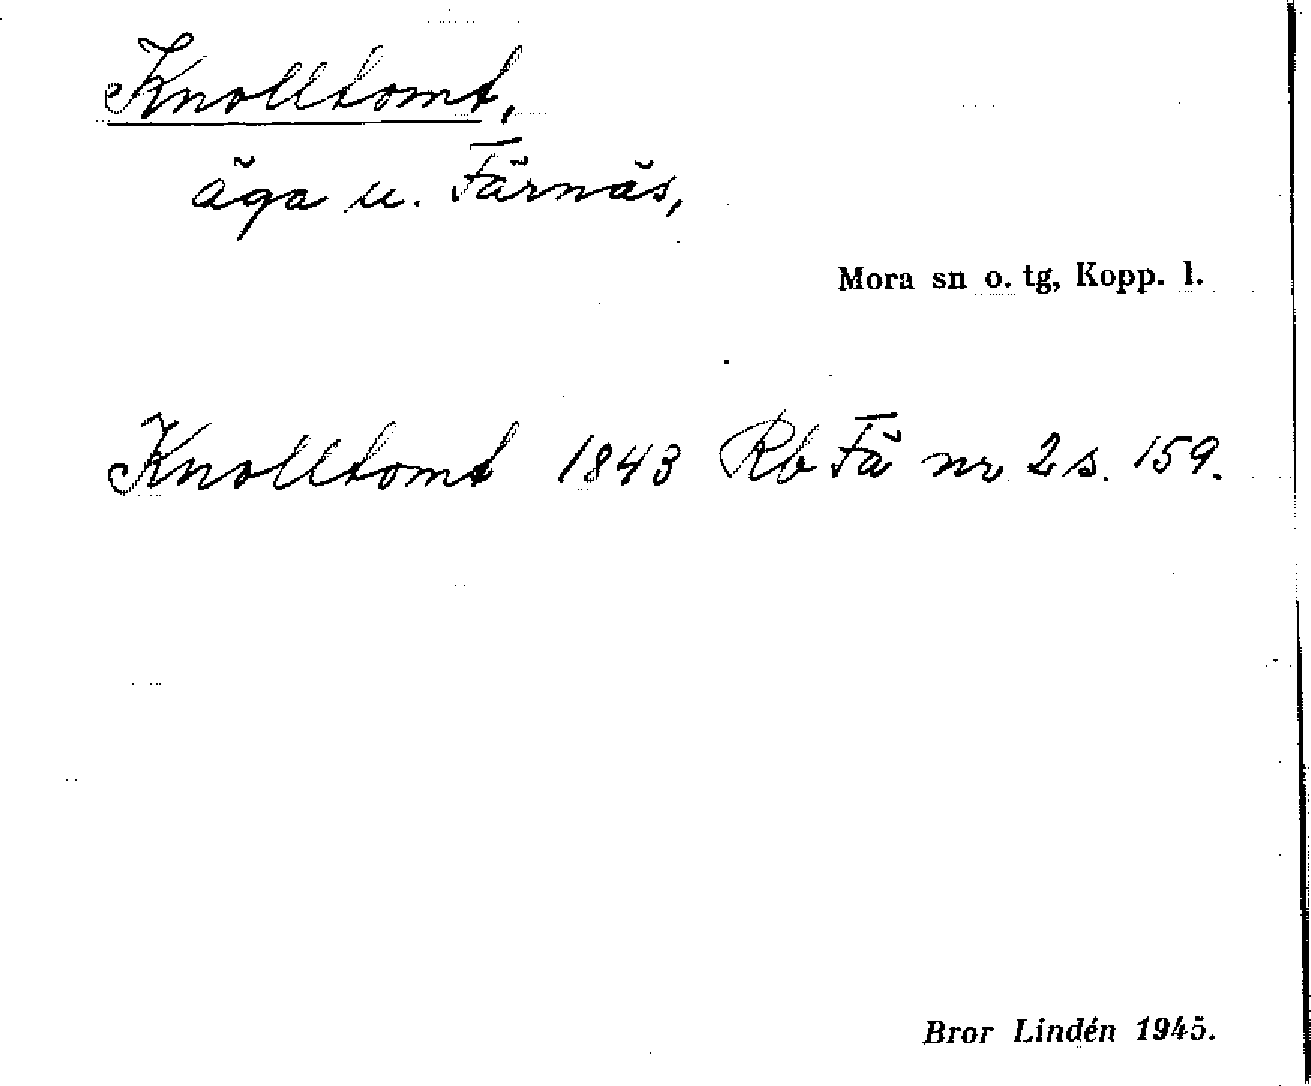 Knolltomt,
äga u. Färnäs,
Mora sn o. tg, Kopp. l.
Knolltomt 1843 Rb Fä nr 2 s. 159.
Bror Lindén 1945.